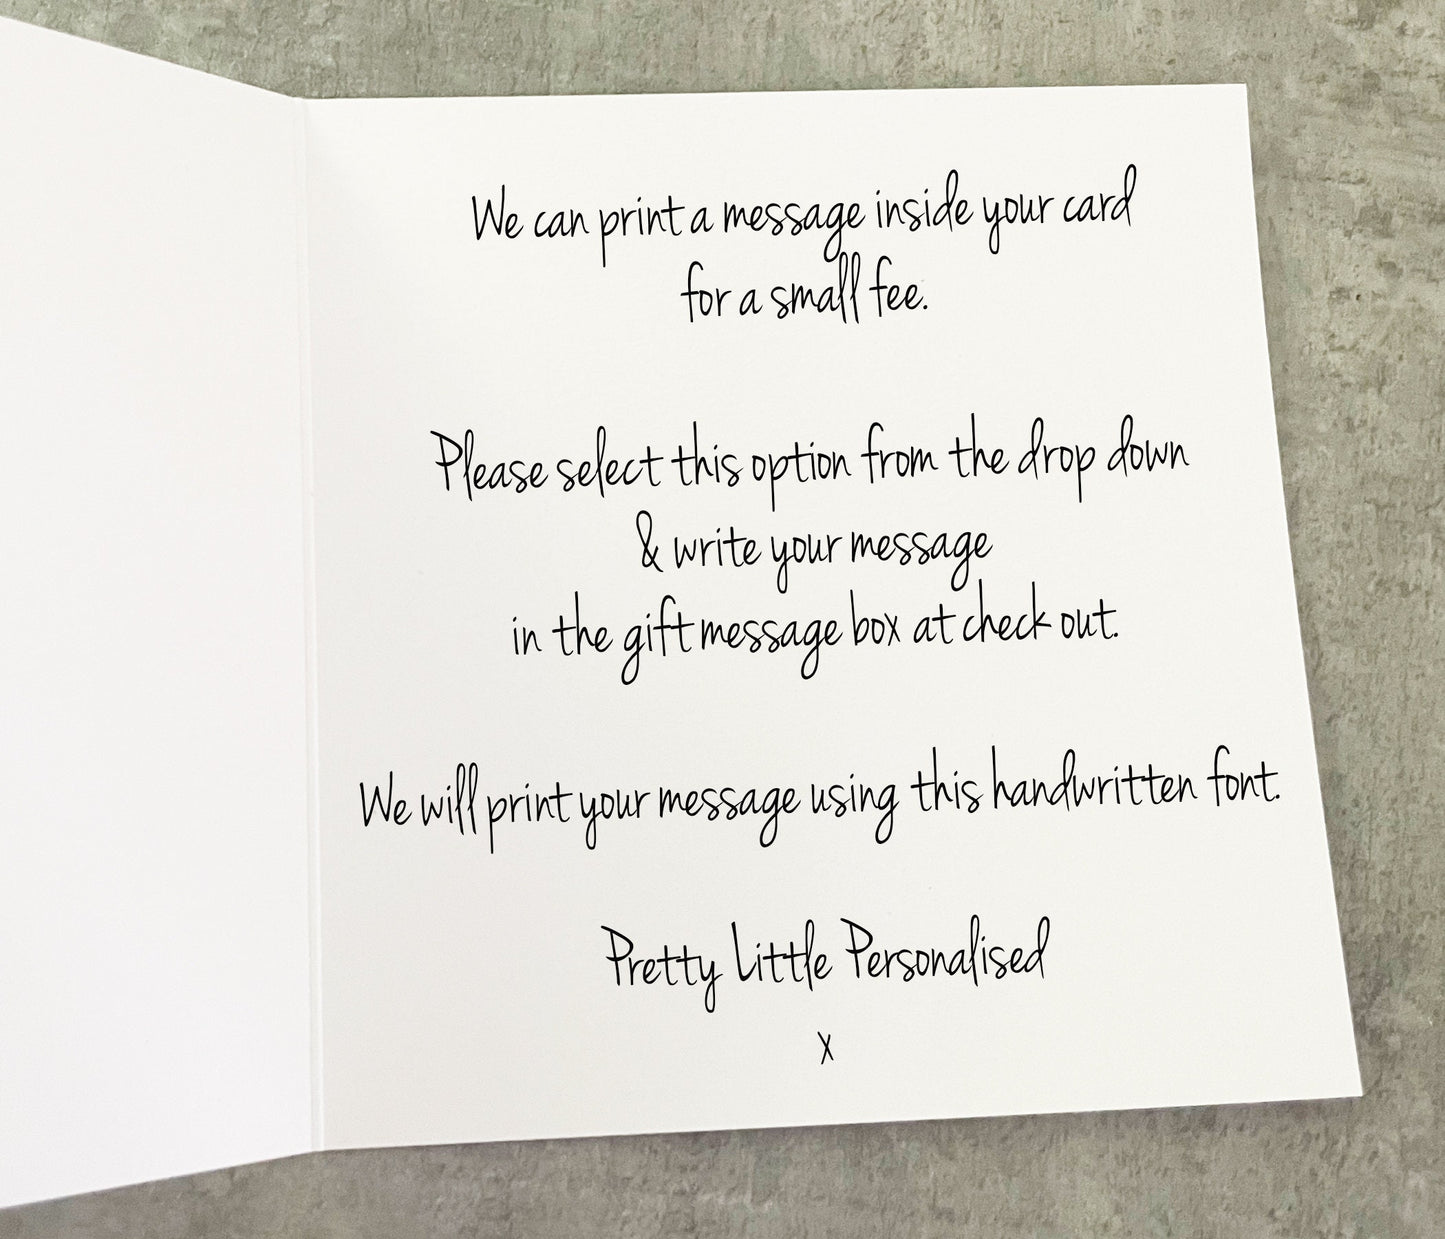 We can print a message inside your card
for a small fee.
Please select this option from the drop down
& write your message
in the gift message box at check out.
We will print your message using this handwritten font.
Pretty Little Personalised
x